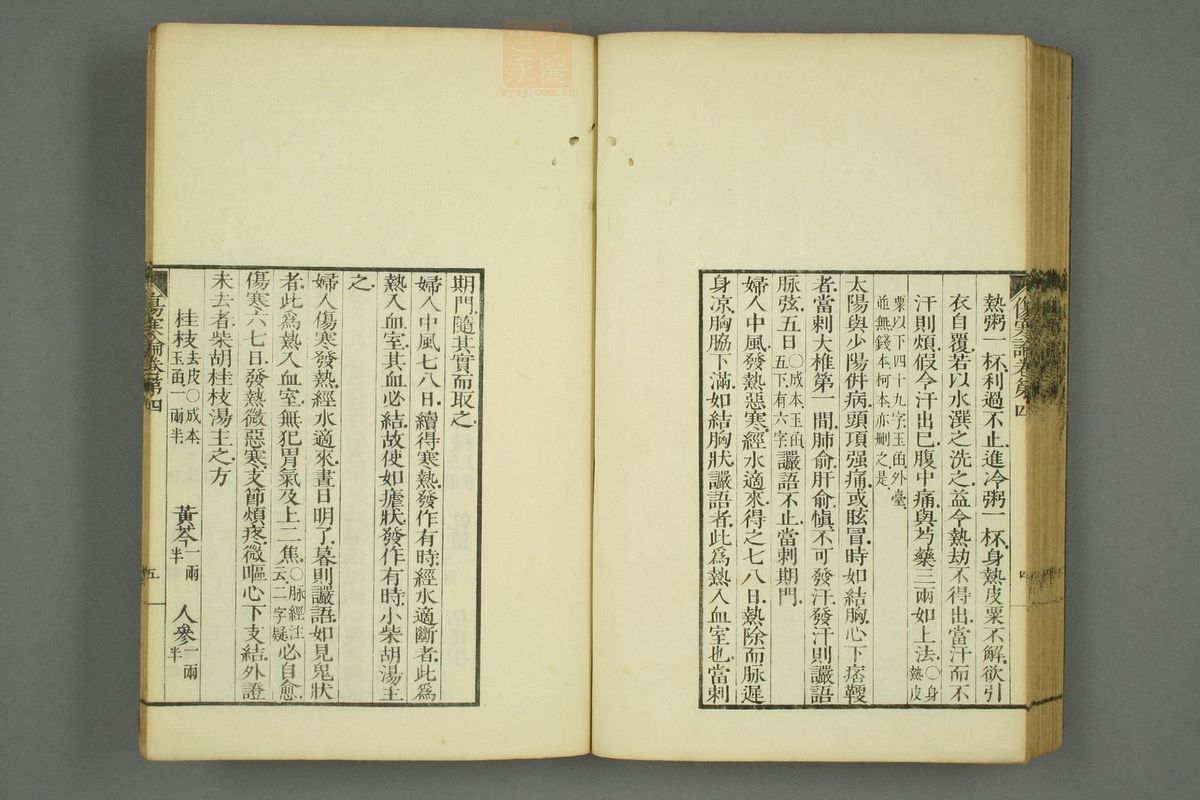 傷寒論卷第四
四
熱粥一杯利過不止進冷粥一杯身熱皮粟不解欲引
衣自覆若以水潠之洗之益令熱劫不得出當汗而不
汗則煩假令汗出已腹中痛與芍藥三兩如上法○身熱皮
粟以下四十九字玉函外臺並無錢本柯本亦刪之是
太陽與少陽併病頭項强痛或眩冒時如結胸心下痞鞕
者當刺大椎第一間肺俞肝俞愼不可發汗發汗則讝語
脉弦五日○成本玉函五下有六字讝語不止當刺期門
婦人中風發熱惡寒經水適來得之七八日熱除而脉遲
身凉胸脇下滿如結胸狀讝語者此爲熱入血室也當刺
期門隨其實而取之
婦人中風七八日續得寒熱發作有時經水適斷者此爲
熱入血室其血必結故使如瘧狀發作有時小柴胡湯主
之
婦人傷寒發熱經水適來晝日明了暮則讝語如見鬼狀
者此爲熱入血室無犯胃氣及上二焦○脉經注云二字疑必自愈
傷寒六七日發熱微惡寒支節煩疼微嘔心下支結外證
未去者柴胡桂枝湯主之方
桂枝去皮○成本玉函一兩半 黃芩一兩半 人參一兩半
傷寒論卷第四
五
中醫世家
zysj.com.cn